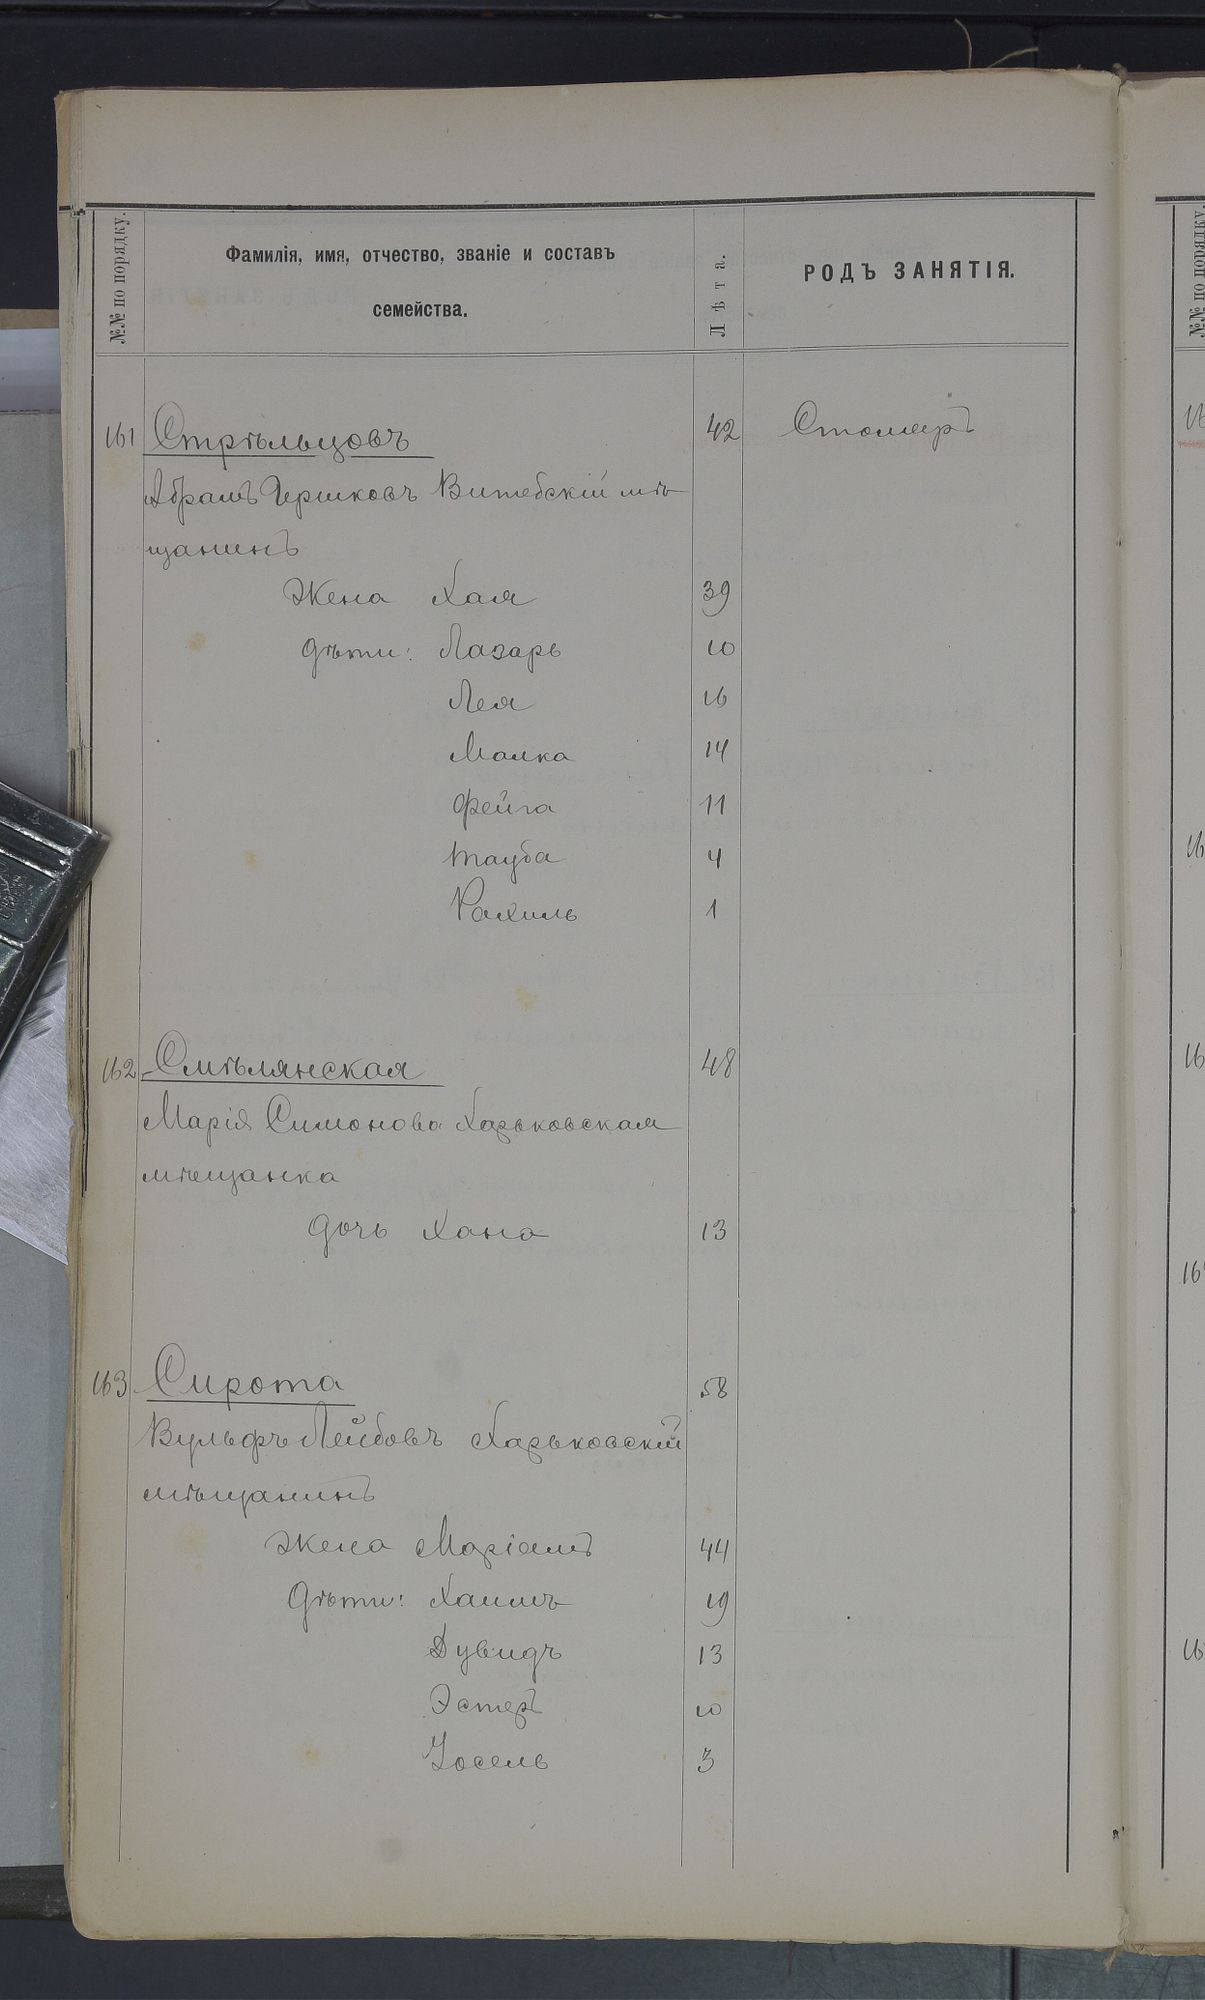 №№ по порядку.
Фамилія, имя, отчество, званіе и составъ
семейства.
Лѣта.
РОДЪ ЗАНЯТІЯ.
№№ по порядку.
161 Стрѣльцовъ 42 Столяръ
Абрамъ Гершковъ Витебскій мѣ-
щанинъ
Жена Хая 39
Дѣти: Лазарь 10
Лея 16
Малка 14
Фейга 11
Тауба 4
Рахиль 1
162 Смѣлянская 48
Марія Симонова Харьковская
мѣщанка
Дочь Хана 13
163 Сирота 58
Вульфъ Лейбовъ Харьковскій
мѣщанинъ
Жена Маріамъ 44
Дѣти: Хаимъ 19
Дувидъ 13
Эстеръ 10
Іосель 3